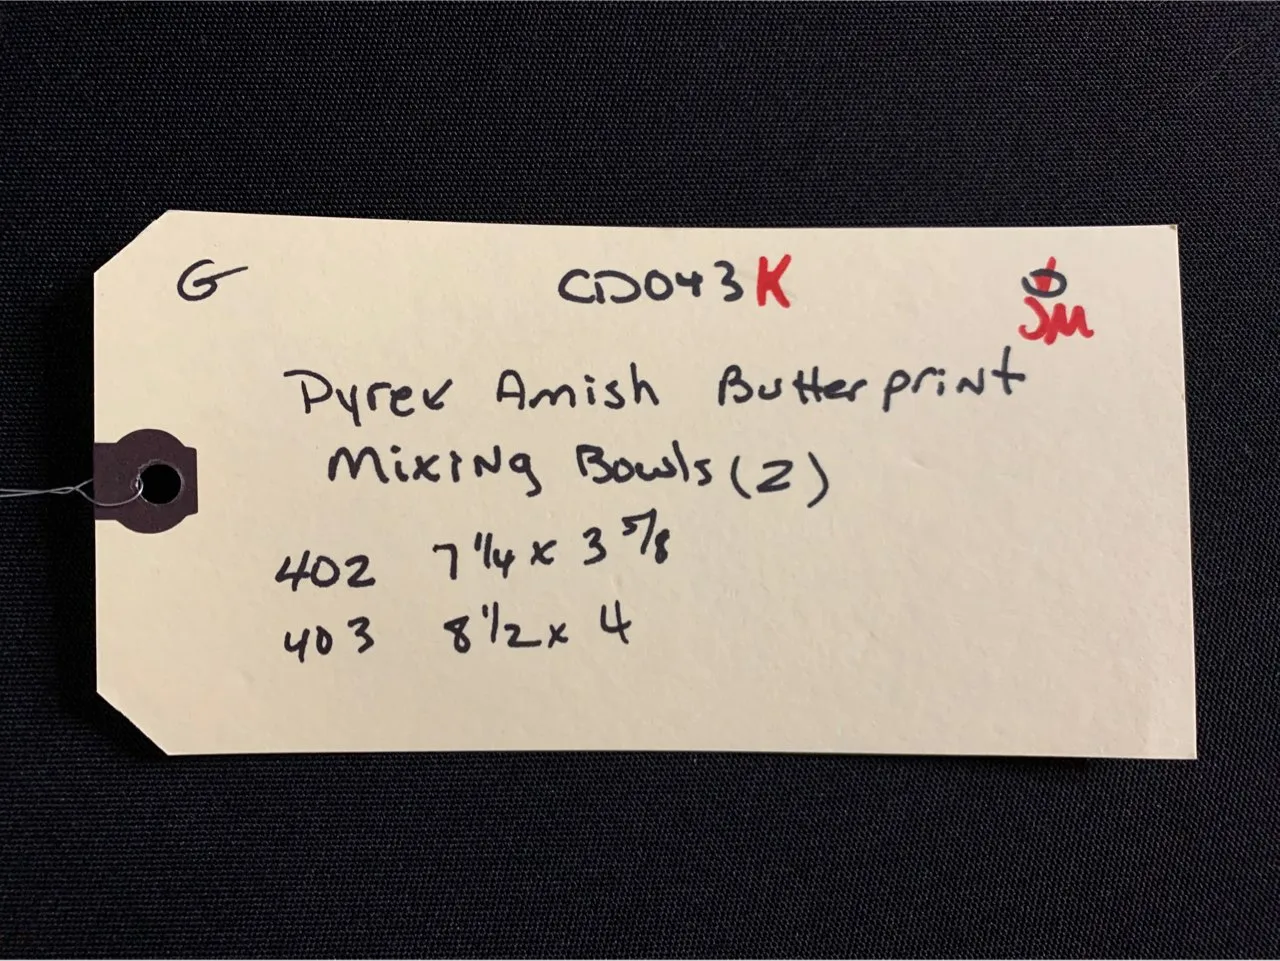 G CD043K
JM
Pyrex Amish Butterprint
Mixing Bowls (2)
402 7 1/4 x 3 5/8
403 8 1/2 x 4